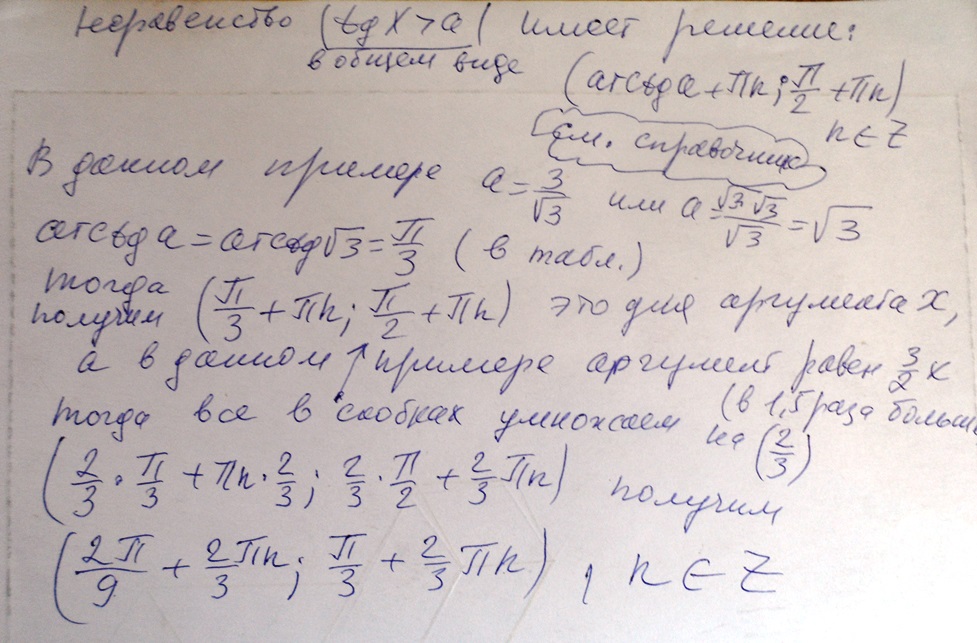 Неравенство (tg x > a) имеет решение:
в общем виде
(arctg a + πn; π/2 + πn)
n ∈ Z
см. справочник
В данном примере a = 3/√3 или a = √3√3/√3 = √3
arctg a = arctg √3 = π/3 (в табл.)
тогда
получим (π/3 + πn; π/2 + πn) это для аргумента x,
а в данном примере аргумент равен 3/2 x
тогда все в скобках умножаем (в 1,5 раза больше
на (2/3)
(2/3 · π/3 + πn · 2/3; 2/3 · π/2 + 2/3 πn) получим
(2π/9 + 2/3 πn; π/3 + 2/3 πn), n ∈ Z